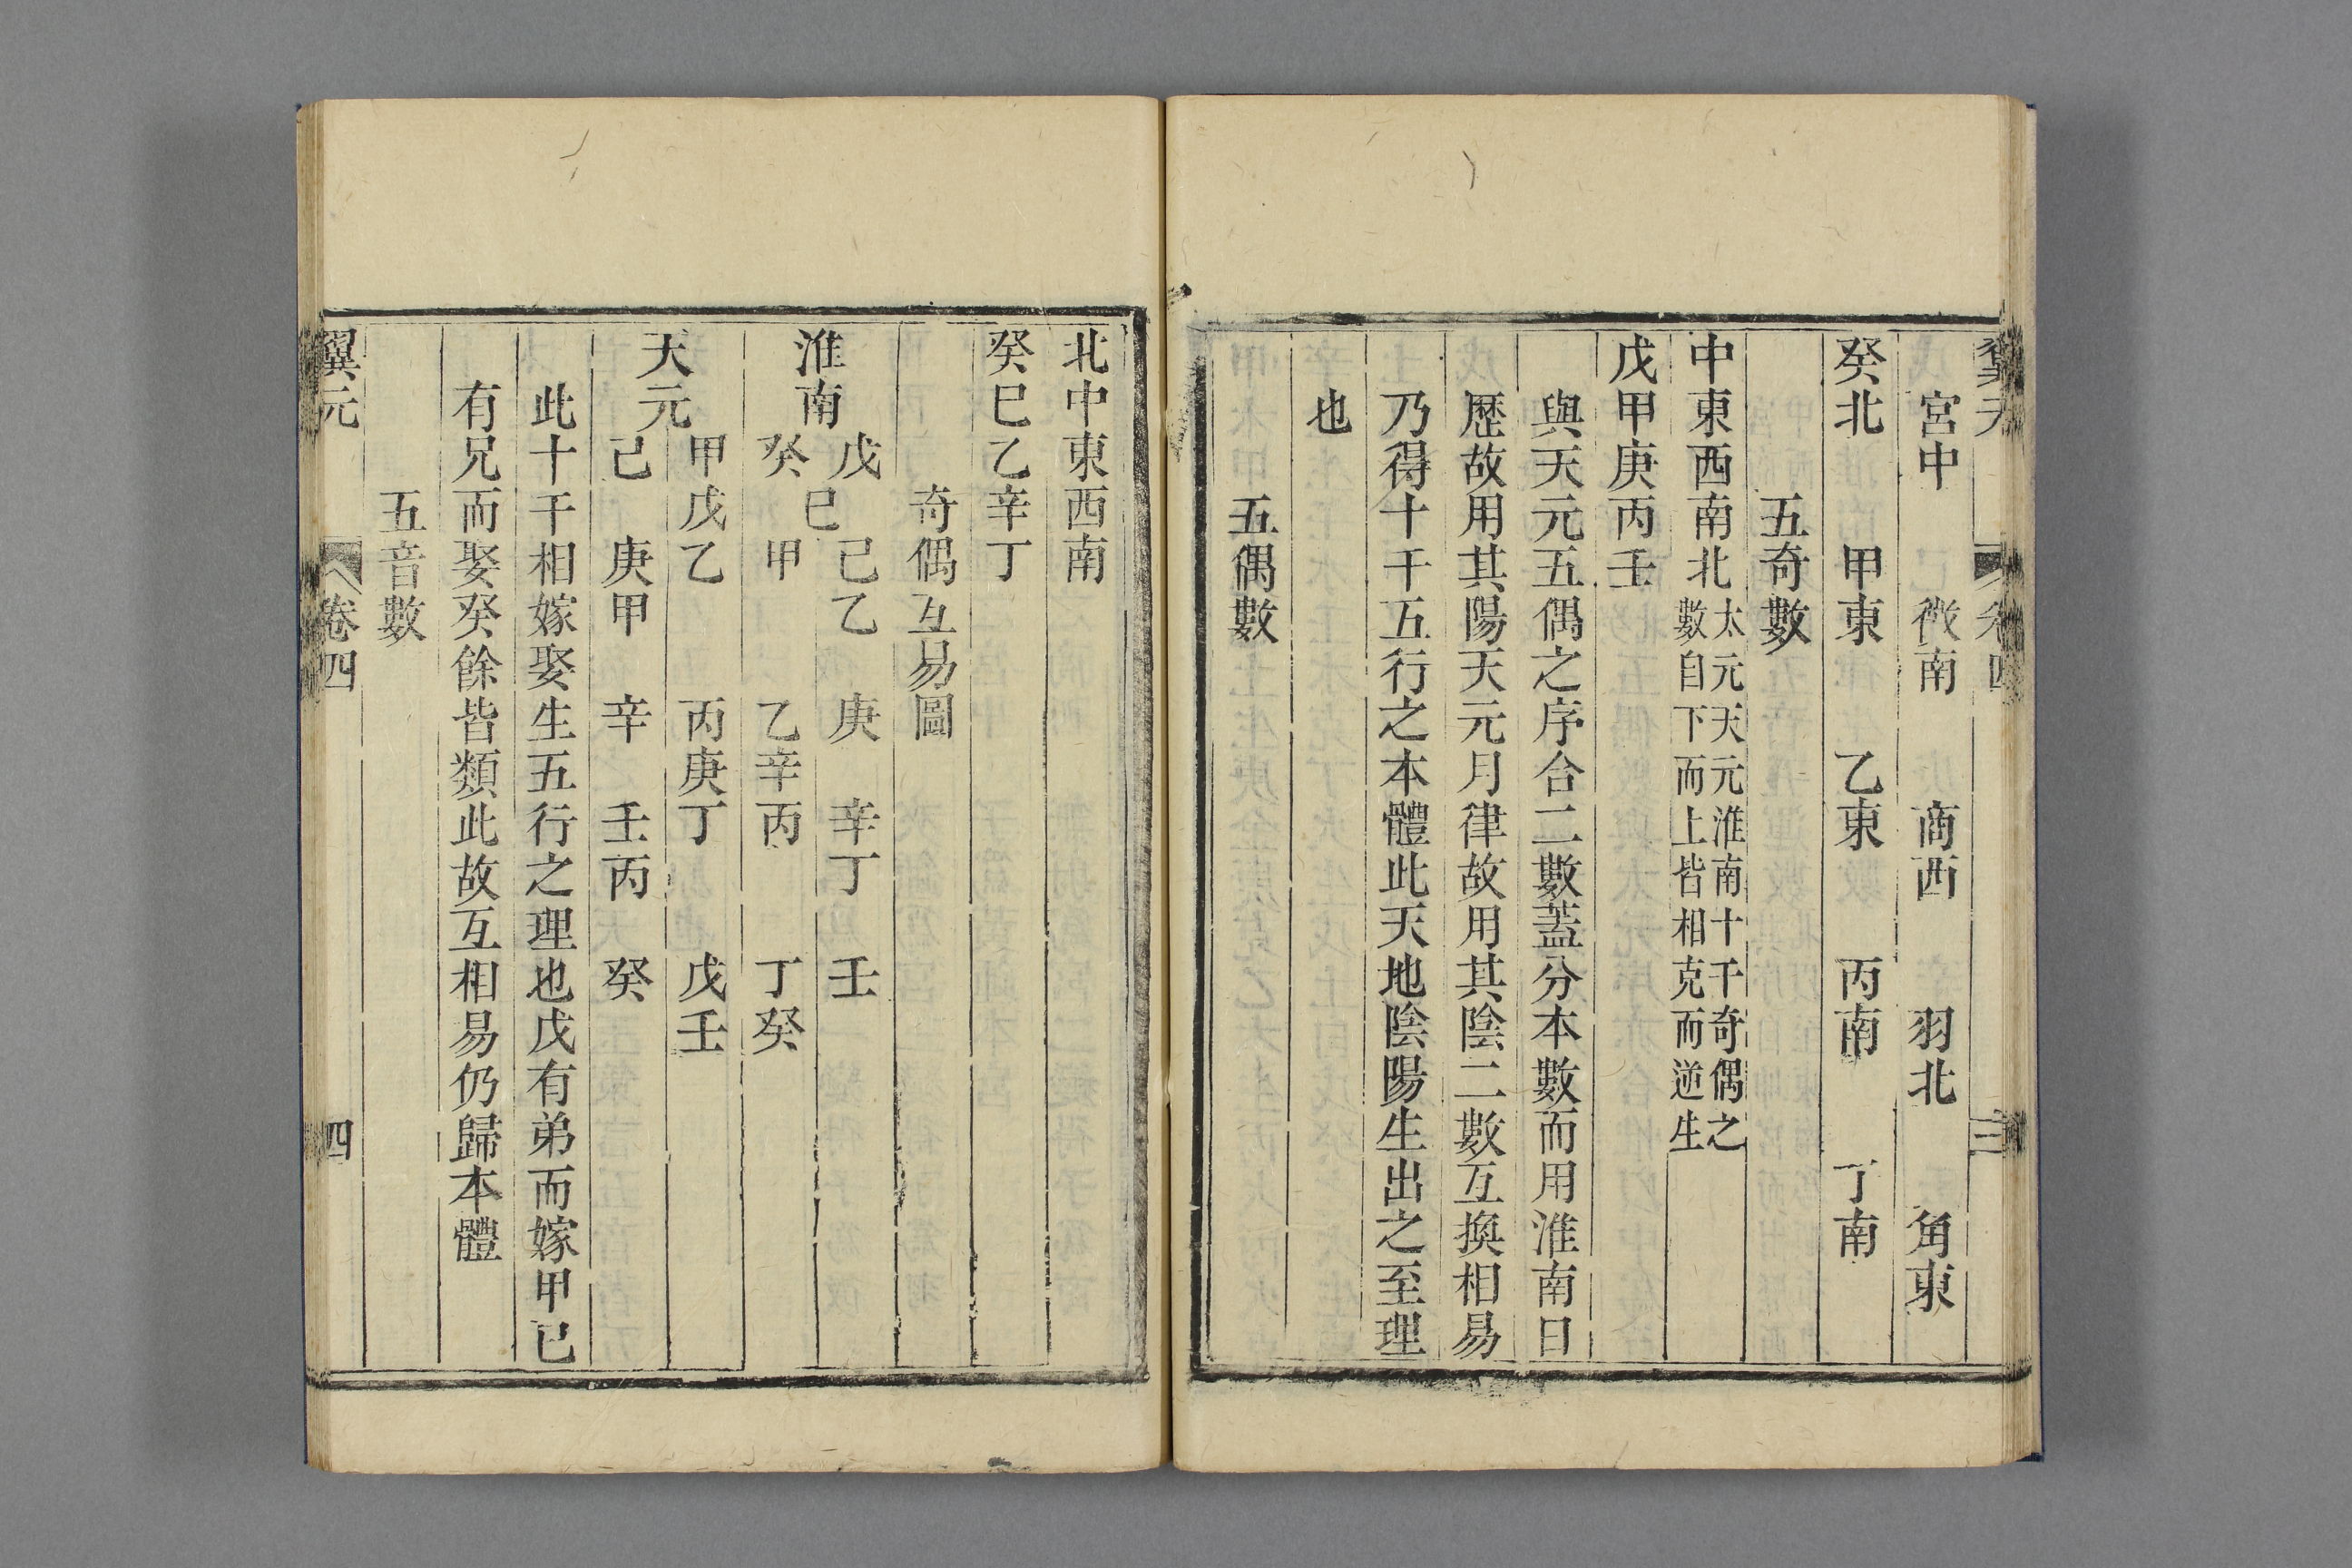 翼元 卷四 三
宮中 徴南 商西 羽北 角東
癸北 甲東 乙東 丙南 丁南
五奇數
中東西南北 太元天元淮南十干奇偶之
數自下而上皆相克而逆生
戊甲庚丙壬
與天元五偶之序合二數蓋分本數而用淮南日
歷故用其陽天元月律故用其陰二數互換相易
乃得十干五行之本體此天地陰陽生出之至理
也
五偶數
北中東西南
癸巳乙辛丁
奇偶互易圖
淮南
戊 己乙 庚 辛丁 壬
巳
癸 甲 乙辛丙 丁癸
天元
甲戊乙 丙庚丁 戊壬
己 庚甲 辛 壬丙 癸
此十干相嫁娶生五行之理也戊有弟而嫁甲已
有兄而娶癸餘皆類此故互相易仍歸本體
五音數
翼元 卷四 四